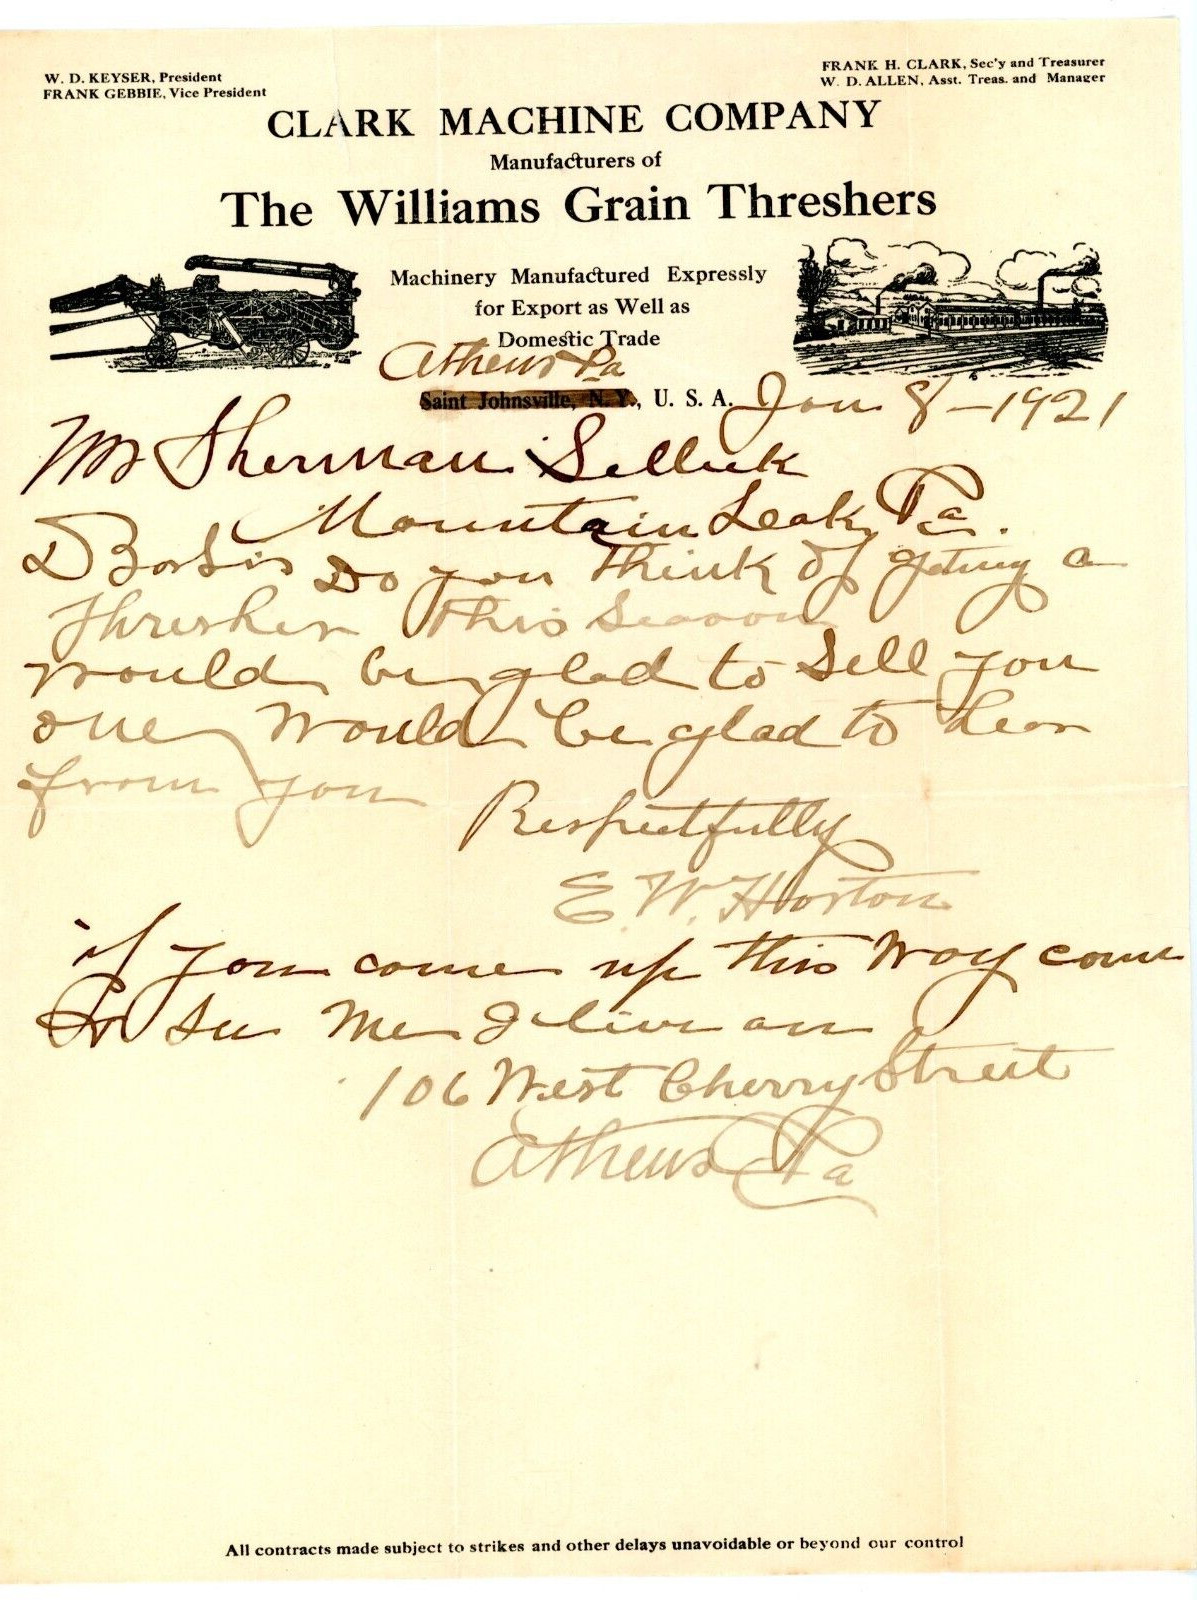 W. D. KEYSER, President
FRANK GEBBIE, Vice President
FRANK H. CLARK, Sec'y and Treasurer
W. D. ALLEN, Asst. Treas. and Manager
CLARK MACHINE COMPANY
Manufacturers of
The Williams Grain Threshers
Machinery Manufactured Expressly
for Export as Well as
Domestic Trade
Athens Pa
Saint Johnsville, N. Y., U. S. A. Jan 8 - 1921
Mr Sherman Selleck
Mountain Leak, Pa.
D Sir Do you think of geting a
thresher this season
would be glad to sell you
one would be glad to hear
from you
Respectfully
E. W. Horton
if you come up this way come
& see me I live on
106 West Cherry Street
Athens Pa
All contracts made subject to strikes and other delays unavoidable or beyond our control